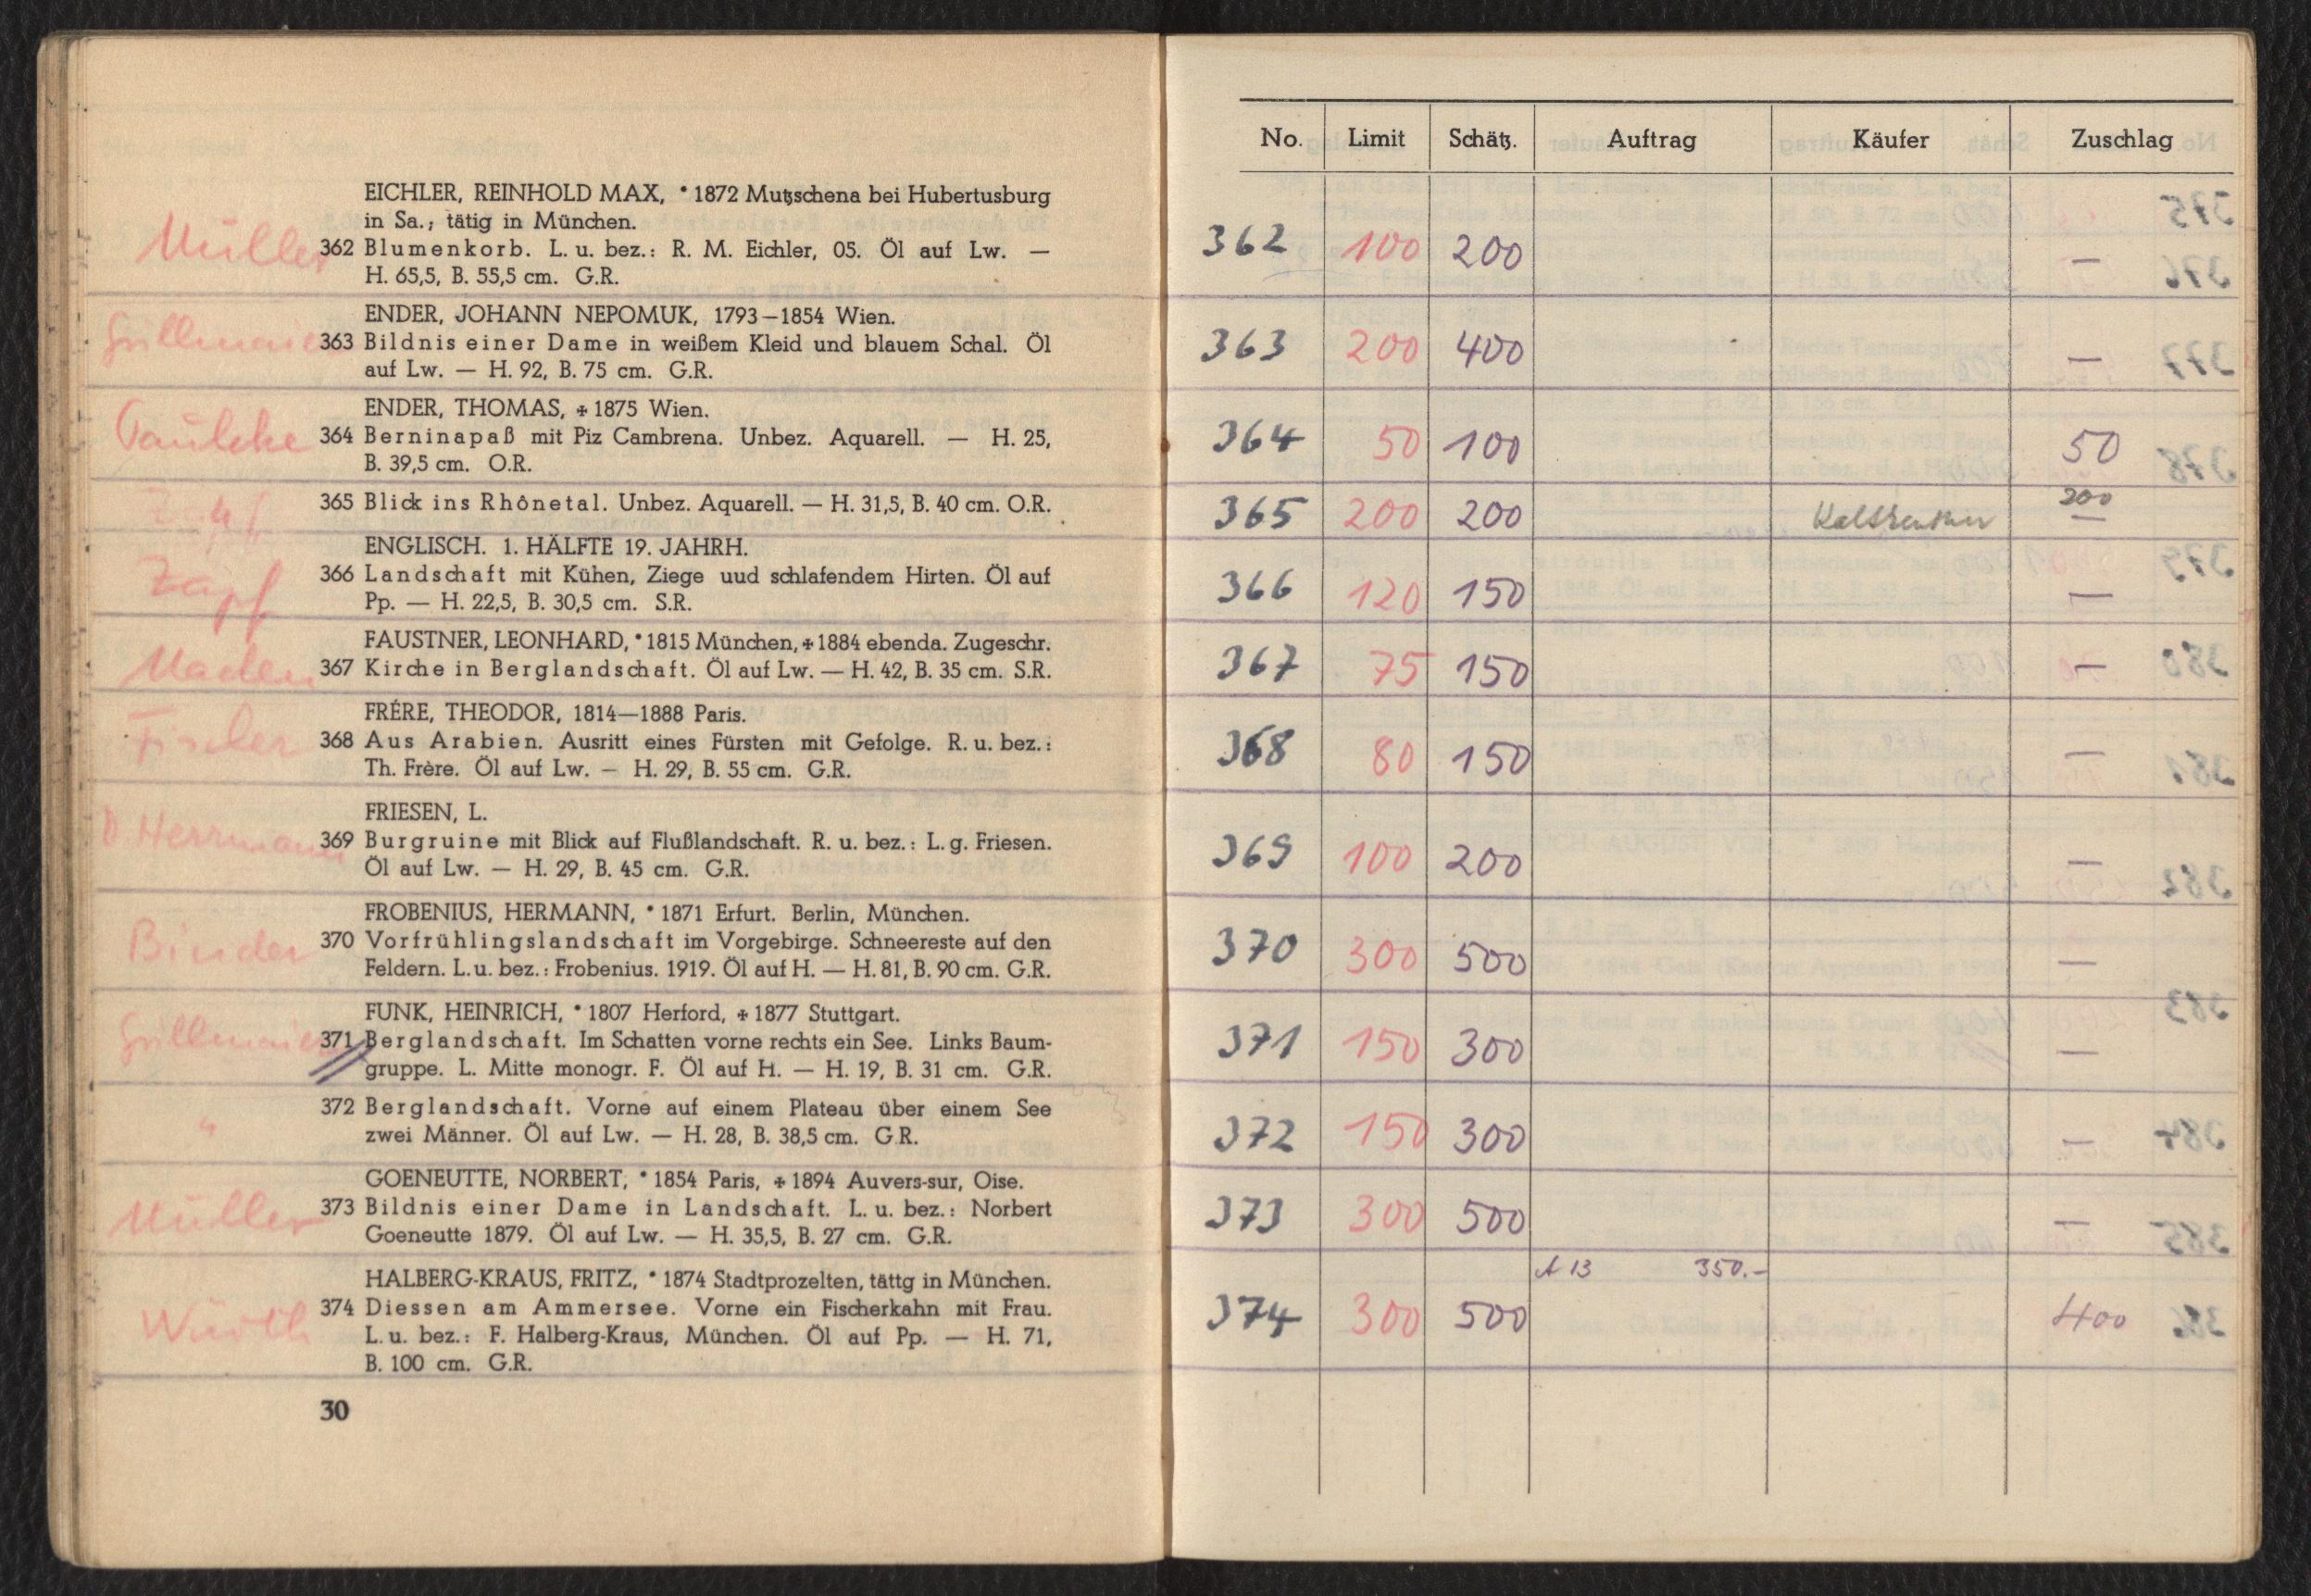 EICHLER, REINHOLD MAX, * 1872 Mutzschena bei Hubertusburg
in Sa.; tätig in München.
Müller
362 Blumenkorb. L. u. bez.: R. M. Eichler, 05. Öl auf Lw. —
H. 65,5, B. 55,5 cm. G.R.
ENDER, JOHANN NEPOMUK, 1793—1854 Wien.
Grillmaier
363 Bildnis einer Dame in weißem Kleid und blauem Schal. Öl
auf Lw. — H. 92, B. 75 cm. G.R.
ENDER, THOMAS, ✢ 1875 Wien.
Paulcke
364 Berninapaß mit Piz Cambrena. Unbez. Aquarell. — H. 25,
B. 39,5 cm. O.R.
Zapf
365 Blick ins Rhônetal. Unbez. Aquarell. — H. 31,5, B. 40 cm. O.R.
ENGLISCH. 1. HÄLFTE 19. JAHRH.
Zapf
366 Landschaft mit Kühen, Ziege uud schlafendem Hirten. Öl auf
Pp. — H. 22,5, B. 30,5 cm. S.R.
FAUSTNER, LEONHARD, * 1815 München, ✢ 1884 ebenda. Zugeschr.
367 Kirche in Berglandschaft. Öl auf Lw. — H. 42, B. 35 cm. S.R.
FRÉRE, THEODOR, 1814—1888 Paris.
Fischer
368 Aus Arabien. Ausritt eines Fürsten mit Gefolge. R. u. bez.:
Th. Frère. Öl auf Lw. — H. 29, B. 55 cm. G.R.
FRIESEN, L.
D. Herrmann
369 Burgruine mit Blick auf Flußlandschaft. R. u. bez.: L. g. Friesen.
Öl auf Lw. — H. 29, B. 45 cm. G.R.
FROBENIUS, HERMANN, * 1871 Erfurt. Berlin, München.
Binder
370 Vorfrühlingslandschaft im Vorgebirge. Schneereste auf den
Feldern. L. u. bez.: Frobenius. 1919. Öl auf H. — H. 81, B. 90 cm. G.R.
FUNK, HEINRICH, * 1807 Herford, ✢ 1877 Stuttgart.
Grillmaier
371 Berglandschaft. Im Schatten vorne rechts ein See. Links Baum-
gruppe. L. Mitte monogr. F. Öl auf H. — H. 19, B. 31 cm. G.R.
"
372 Berglandschaft. Vorne auf einem Plateau über einem See
zwei Männer. Öl auf Lw. — H. 28, B. 38,5 cm. G.R.
GOENEUTTE, NORBERT, * 1854 Paris, ✢ 1894 Auvers-sur, Oise.
Müller
373 Bildnis einer Dame in Landschaft. L. u. bez.: Norbert
Goeneutte 1879. Öl auf Lw. — H. 35,5, B. 27 cm. G.R.
HALBERG-KRAUS, FRITZ, * 1874 Stadtprozelten, tättg in München.
Würth
374 Diessen am Ammersee. Vorne ein Fischerkahn mit Frau.
L. u. bez.: F. Halberg-Kraus, München. Öl auf Pp. — H. 71,
B. 100 cm. G.R.
30
No. Limit Schätz. Auftrag Käufer Zuschlag
362 100 200 —
363 200 400 —
364 50 100 50
365 200 200 200 —
366 120 150 —
367 75 150 —
368 80 150 —
369 100 200 —
370 300 500 —
371 150 300 —
372 150 300 —
373 300 500 —
A 13 350.-
374 300 500 400